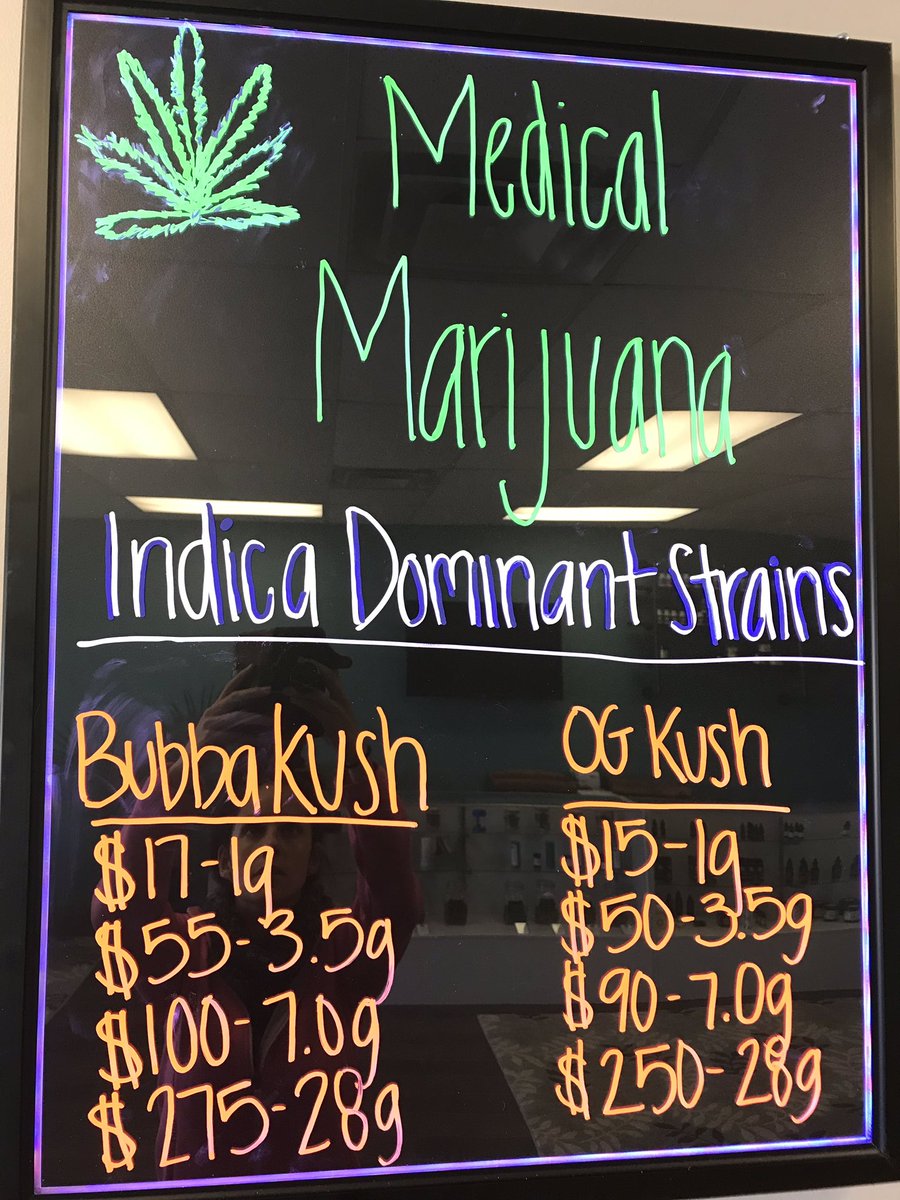 Medical
Marijuana
Indica Dominant Strains
Bubba Kush
$17-1g
$55-3.5g
$100-7.0g
$275-28g
OG Kush
$15-1g
$50-3.5g
$90-7.0g
$250-28g